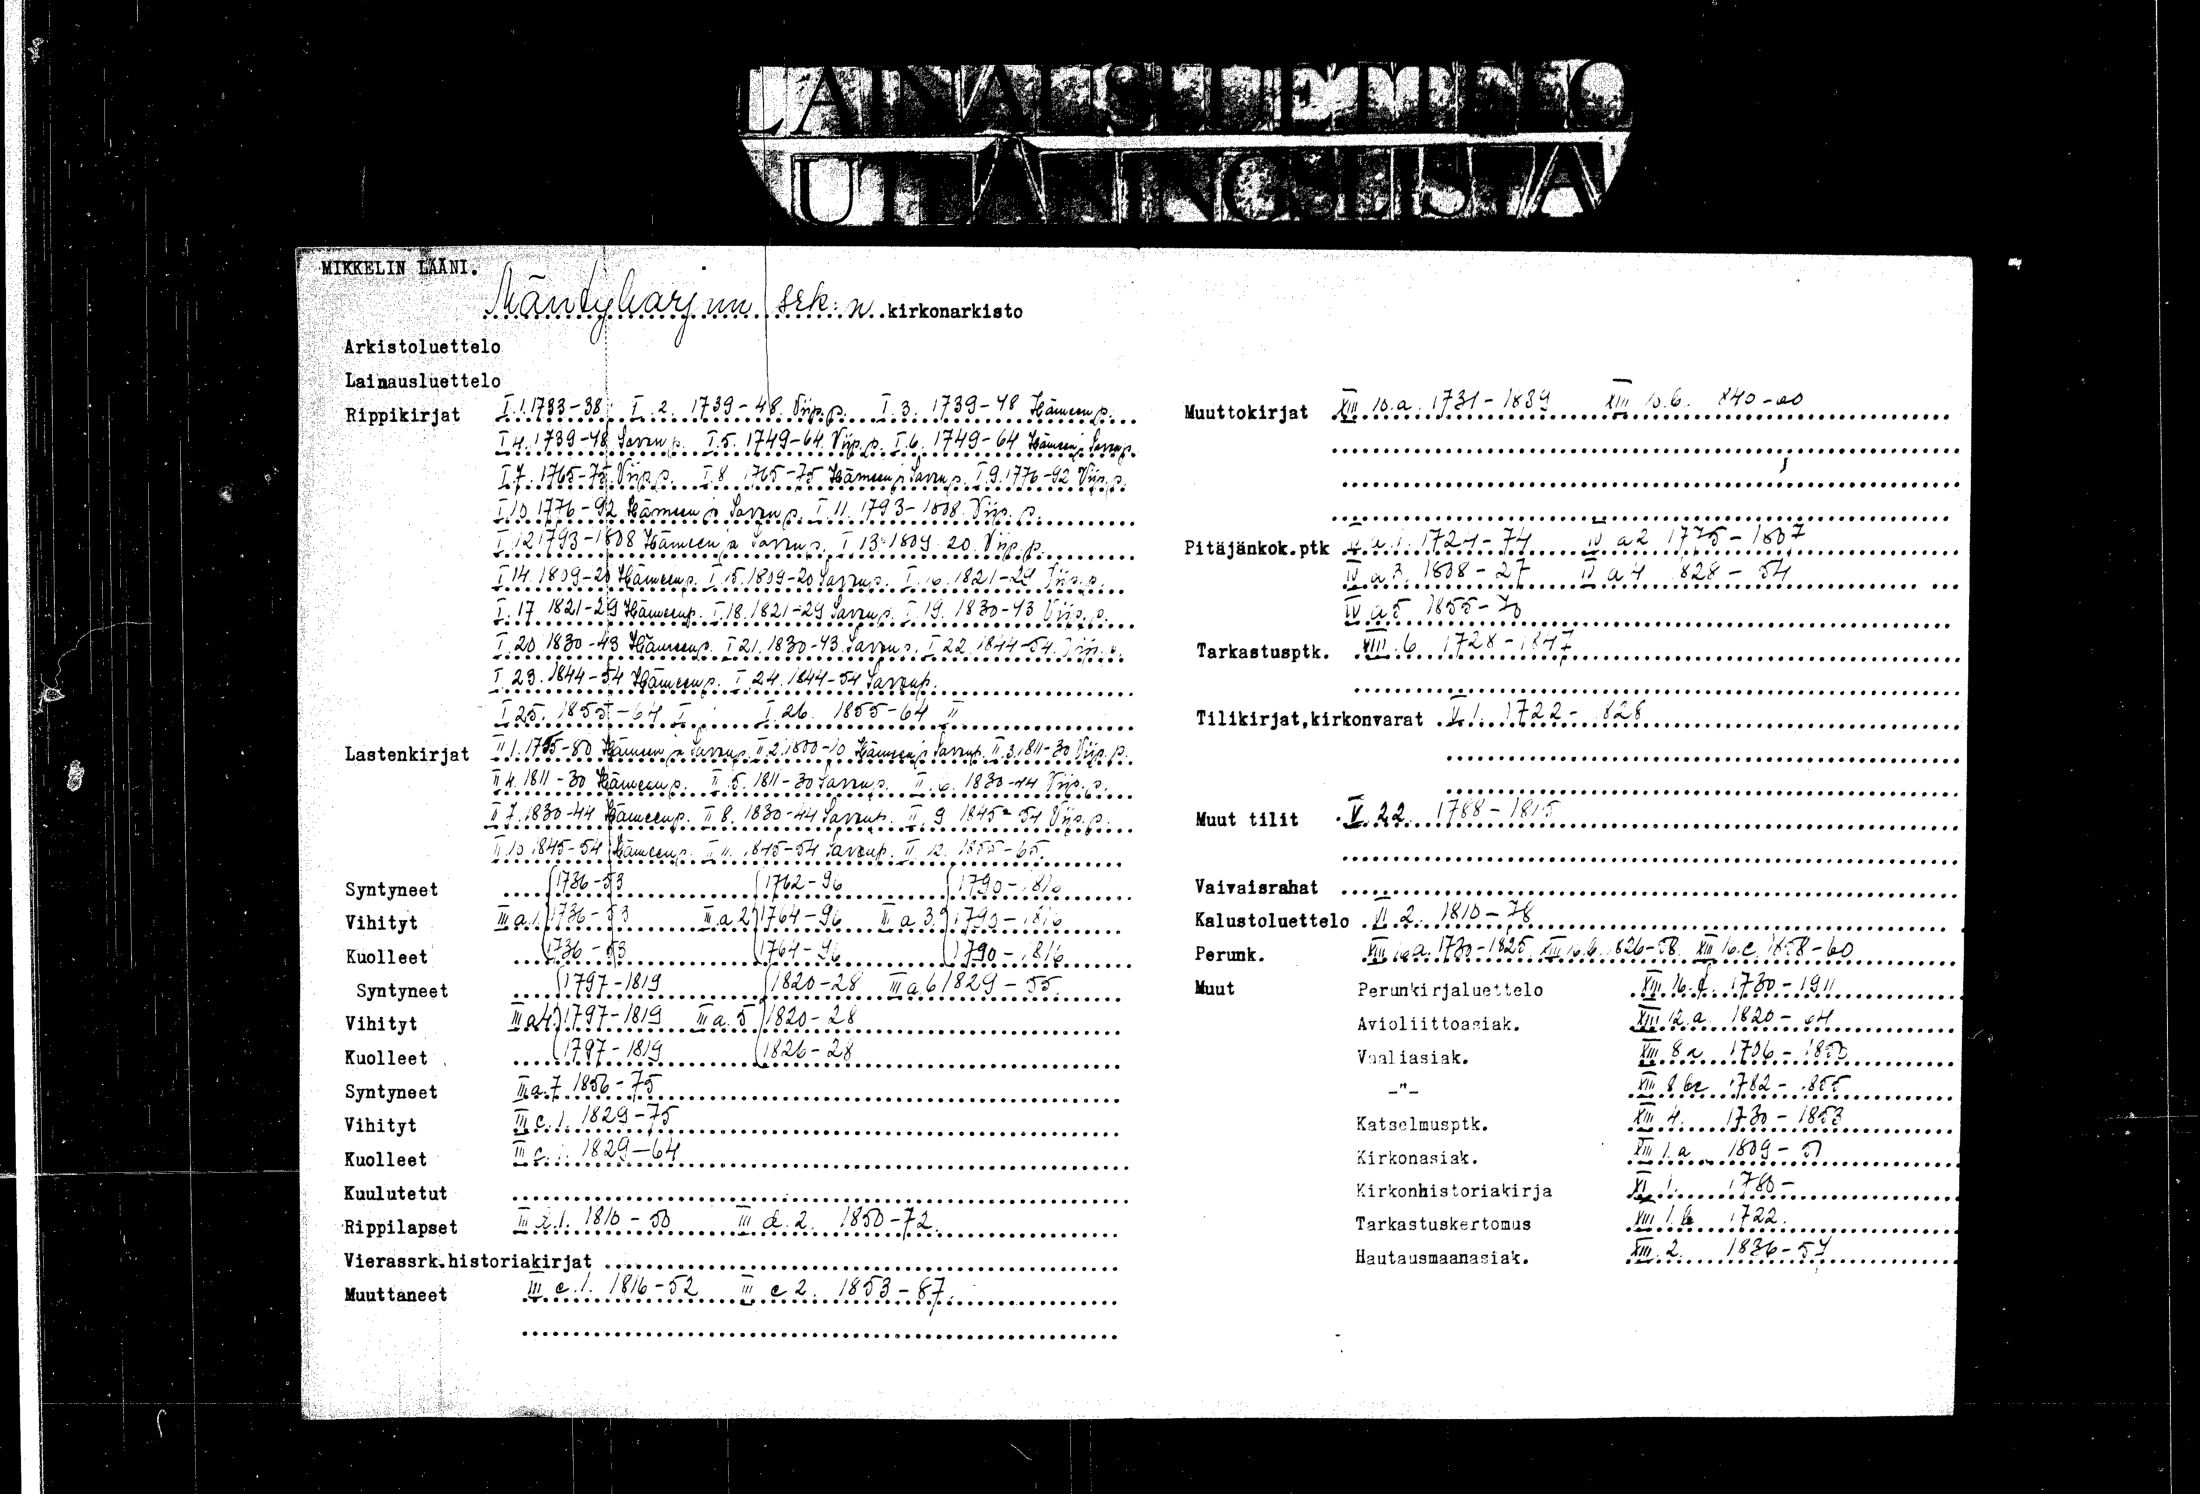 LAINAUSLUETTELO
UTLÅNINGSLISTA
MIKKELIN LÄÄNI.
Mäntyharjun srk:n kirkonarkisto
Arkistoluettelo
Lainausluettelo
Rippikirjat I.1.1733-38 I.2. 1739-48. Viip.p. I.3. 1739-48 Hämeen p.
I 4. 1739-48 Savon p. I.5. 1749-64. Viip.p. I.6. 1749-64 Hämeen ja Savon p.
I.7. 1765-75 Viip.p. I.8 1765-75 Hämeen ja Savon p. I.9.1776-92 Viip.p.
I.10 1776-92 Hämeen ja Savon p. I.11. 1793-1808. Viip.p.
I.12 1793-1808 Hämeen ja Savon p. I 13.1809-20. Viip.p.
I 14. 1809-20 Hämeen p. I.15. 1809-20 Savon p. I.16. 1821-29 Viip.p.
I.17 1821-29 Hämeen p. I.18. 1821-29 Savon p. I.19. 1830-43 Viip.p.
I.20 1830-43 Hämeen p. I 21. 1830-43. Savon p. I 22. 1844-54. Viip.p.
I 23. 1844-54 Hämeen p. I 24. 1844-54 Savon p.
I 25. 1855-64 I I.26. 1855-64 II
Lastenkirjat II 1. 1755-80 Hämeen ja Savon p. II 2. 1800-10 Hämeen ja Savon p. II 3. 1811-30 Viip.p.
II 4. 1811-30 Hämeen p. II 5. 1811-30 Savon p. II.6. 1830-44 Viip.p.
II 7. 1830-44 Hämeen p. II 8. 1830-44 Savon p. II.9 1845-54 Viip.p.
II.10 1845-54 Hämeen p. II 11. 1845-54 Savon p. II 12. 1855-65.
Syntyneet 1736-53 1762-96 1790-1816
Vihityt III a.1. 1736-53 III a 2 1764-96 III a 3. 1790-1816
Kuolleet 1736-53 1764-96 1790-1816
Syntyneet 1797-1819 1820-28 III a 6 1829-55.
Vihityt III a 4. 1797-1819 III a.5 1820-28
Kuolleet 1797-1819 1826-28
Syntyneet III a.7 1856-75
Vihityt III c.1. 1829-75
Kuolleet III c.1. 1829-64
Kuulutetut
Rippilapset III d.1. 1810-50 III d.2. 1850-72.
Vierassrk.historiakirjat
Muuttaneet III e.1. 1816-52 III e 2. 1853-67.
Muuttokirjat XIII 10.a. 1731-1839 XIII 10.b. 1840-60
Pitäjänkok.ptk IV a.1. 1724-74 IV a 2 1775-1807
IV a 3. 1808-27 IV a 4 1828-54
IV a 5 1855-70
Tarkastusptk. XIII.6. 1728-1847
Tilikirjat,kirkonvarat V.1. 1722-1828
Muut tilit V.22. 1788-1815
Vaivaisrahat
Kalustoluettelo VI.2. 1810-78
Perunk. XIII 16.a. 1730-1825. XIII 16.b. 1826-58. XIII 16.c. 1858-60
Muut Perunkirjaluettelo XIII.16.d. 1730-1911
Avioliittoasiak. XIII 12.a. 1820-64
Vaaliasiak. XIII 8 a 1706-1850
-"- XIII 8 bc 1782-1855
Katselmusptk. XIII 4. 1730-1853
Kirkonasiak. XIII 1.a 1809-51
Kirkonhistoriakirja XI 1. 1780-
Tarkastuskertomus XIII 1.b 1722.
Hautausmaanasiak. XIII.2. 1836-57